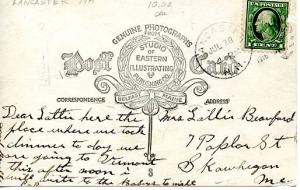 LANCASTER NH
10.00
GENUINE PHOTOGRAPHS
FROM
STUDIO
OF EASTERN
ILLUSTRATING
PUBLISHING CO.
BELFAST, MAINE
Post Card
CORRESPONDENCE
ADDRESS
Dear Lattis here the
place where we took
dinner to day we
are going to Vermont
this after noon i
visit to the
Mrs Lattis Beauford
7 Poplor St
Skowhegan
Me.